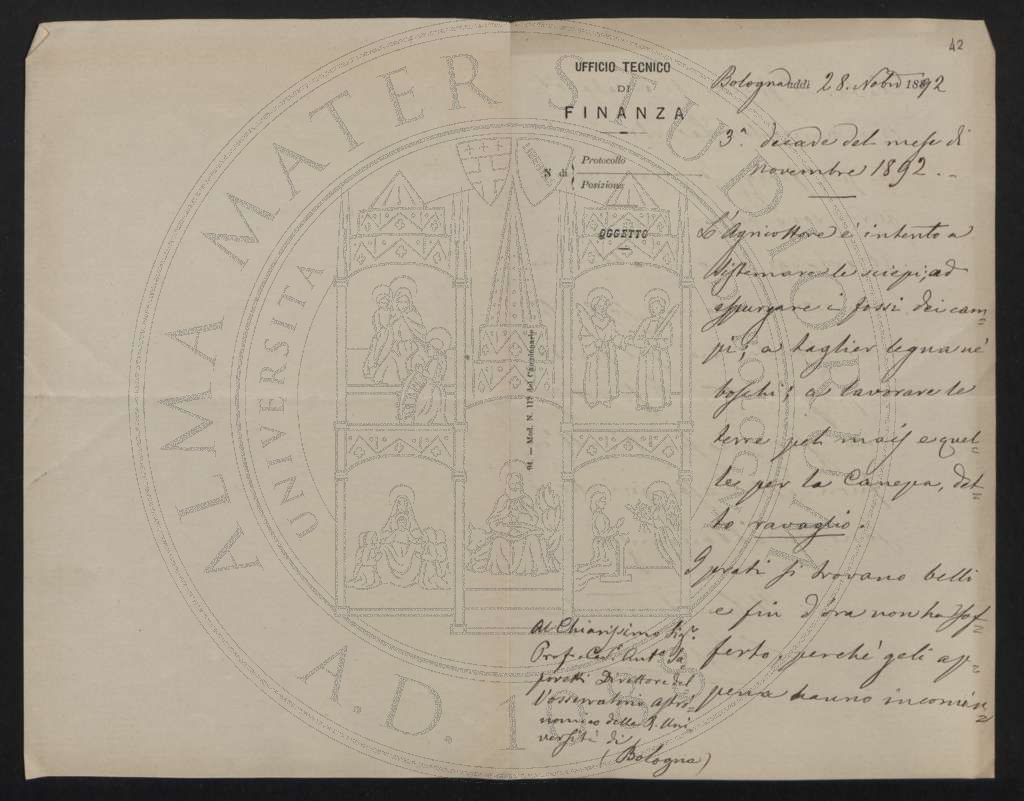 42
UFFICIO TECNICO
DI
FINANZA
N di
Protocollo
Posizione
OGGETTO
94. — Mod. N. 118 del Catalogo
Bologna addì 28. Nobre 1892
3ª decade del mese di
novembre 1892. -
L'Agricoltore è intento a
sistemare le siepi; ad
spurgare i fossi dei cam=
pi; a taglier legna né
boschi; a lavorare le
terre pel maïs e quel=
le per la Canepa, det=
to ravaglio.
I prati si trovano belli
e fin d'ora non ha sof=
ferto, perché geli ap=
pena hanno incomin=
Al Chiarissimo Sigr.
Prof. Cav. Antº Sa
poretti Direttore del
l'osservatorio astro=
nomico della R. Uni
versità di
(Bologna)
ALMA MATER STUDIORUM
UNIVERSITÀ DI BOLOGNA
A.D. 1088